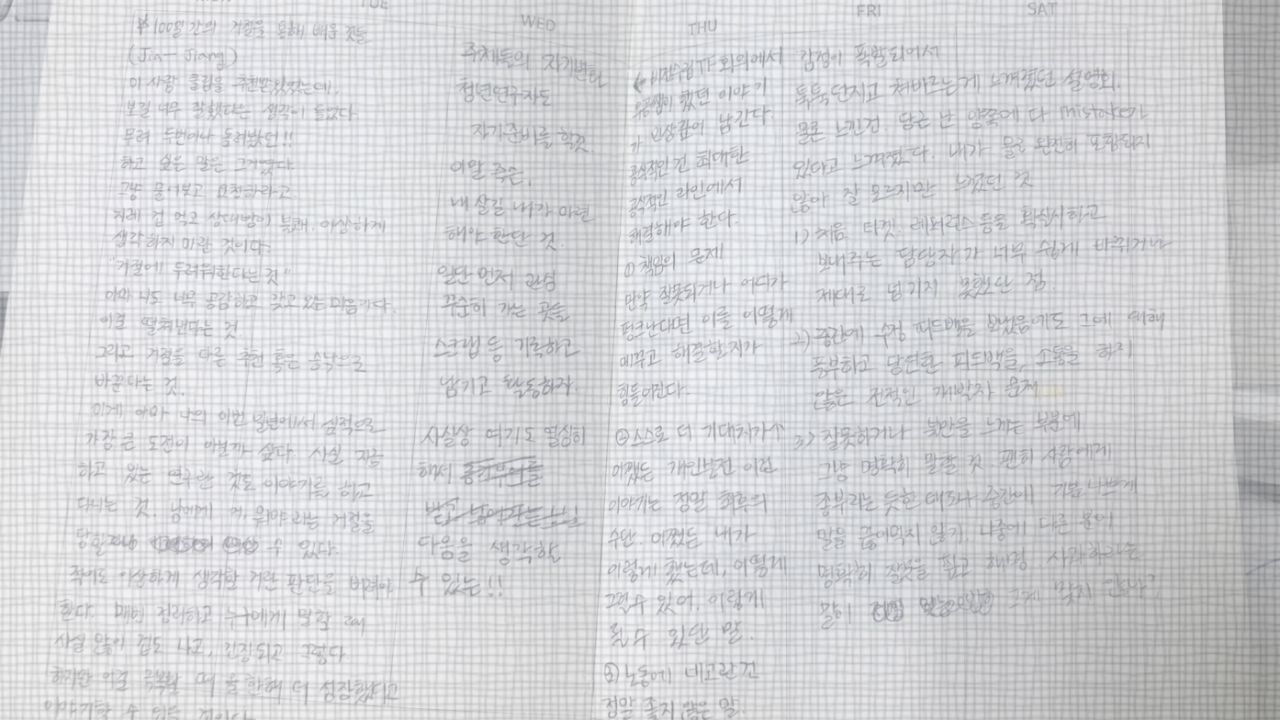 TUE
WED
THU
FRI
SAT
* 100일 간의 거절을 통해 배운 것들
(Jia- Jiang)
이 사람 강의를 추천받았었는데,
보길 너무 잘했다는 생각이 들었다
무려 두번이나 돌려봤던!!
하고 싶은 말은 그거였다.
그냥 물어보고 요청하라고
지레 겁 먹고 상대방이 불쾌, 이상하게
생각하지 미란 것이다.
"거절에 두려워한다는 것"
아마 나도 너무 공감하고 갖고 있는 마음이다.
이걸 떨쳐낸다는 것
그리고 거절을 다른 추천 혹은 승낙으로
바꾼다는 것.
이게 아마 나의 이번 일년에서 심적으로
가장 큰 도전이 아닐까 싶다. 사실 지금
하고 있는 연구란 것도 이야기를 하고
다니는 것. 남에게 에, 뭐야 라는 거절을
당할 수 있다.
적어도 이상하게 생각할 거란 판단을 버려야
한다. 매번 정리하고 누구에게 말할 때
사실 많이 겁도 나고, 긴장되고 그렇다
하지만 이걸 극복할 때 올 한해 더 성장했다고
이야기할 수 있을 것이다
주체들의 자기변화
청년연구자도
자기준비를 할것
이말 즉은,
내 살길 내가 마련
해야 한단 것.
일단 먼저 관심
꾸준히 가는 곳들
스크랩 등 기록하고
남기고 활동하자.
사실상 여기도 열심히
해서
다음을 생각할
수 있는!!
비전수립TF 회의에서
했던 이야기
가 인상깊이 남긴다.
공식적인 건 최대한
공식적인 라인에서
해결해야 한다.
① 책임의 문제
만약 잘못되거나 어디가
펑크난다면 이를 어떻게
메꾸고 해결할지가
힘들어진다.
② 스스로 더 기대치가↑
어쨌든 개인발전 이런
이야기는 정말 최후의
수단. 어쨌든 내가
이렇게 했는데, 어떻게
그럴수 있어, 이렇게
될 수 있단 말.
③ 노동에 대고란건
정말 좋지 않은 말.
감정이 폭발되어서
툭툭 던지고 쳐바르는게 느껴졌던 설명회.
물론 느낀건, 당근 난 양쪽에 다 mistake가
있다고 느껴졌다. 내가 물론 완전히 포함되지
않아 잘 모르지만 느꼈던 것
1) 처음 타겟, 레퍼런스 등을 확실시하고
보내주는 담당자가 너무 쉽게 바뀌거나
제대로 넘기지 못했단 점.
2) 중간에 수정 피드백을 보냈음에도 그에 의해
풍부하고 당연한 피드백을, 소통을 하지
않은 전적인 개발자 문제
3) 잘못하거나 불만을 느끼는 부분에
그냥 명확히 말할 것. 괜히 사람에게
공부하라는 듯한 태도나 중간에 기분 나쁘게
말을 끊어먹지 않기. 나중에 다른 분이
명확히 잘못을 짚고 해명, 사과하라는
말이 그게 맞지 않나?